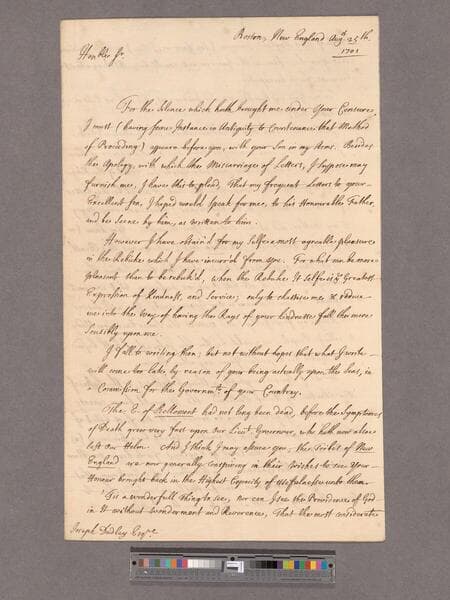 Boston, New England Augt. 25th.
1701
Honble Sr.
For the Silence which hath brought me under Your Censure
I must (having some Instance in Antiquity to Countenance that Method
of Proceeding) appear before you, with your Son in my Arms. Besides
the Apology, with which the Miscarriages of Letters, I suppose may
furnish me, I have this to plead, That my frequent Letters to your
Excellent Son, I hoped would speak for me, to his Honourable Father,
and bee seene by him, as written to him.
However I have obtain'd for my selfe a most agreeable pleasure
in the Rebuke which I have incurr'd from you. For what can be more
pleasant than to be rebuk'd, when the Rebuke It selfe is ye Greatest
Expression of Kindness, and Service; only to chastise me & reduce
me into the way of having the Rays of your kindness fall the more
Sensibly upon me.
I fall to writing then; but not without hopes that what I write
will come too late, by reason of your being actually upon the Seas, in
a Commission for the Governmt. of your Countrey.
The E. of Bellomont had not long been dead, before the Symptomes
of Death grew very fast upon our Lieut. Governour, who hath now also
left our Helm. And I think I may assure you, the Tribes of New
England are now generally Conspiring in their wishes to see Your
Honour brought back in the Highest Capacity of usefulness unto them.
'Tis a wonderfull thing to see, nor can I see the Providence of God
in it without wonderment and Reverence, That the most considerate
Joseph Dudley Esqre.